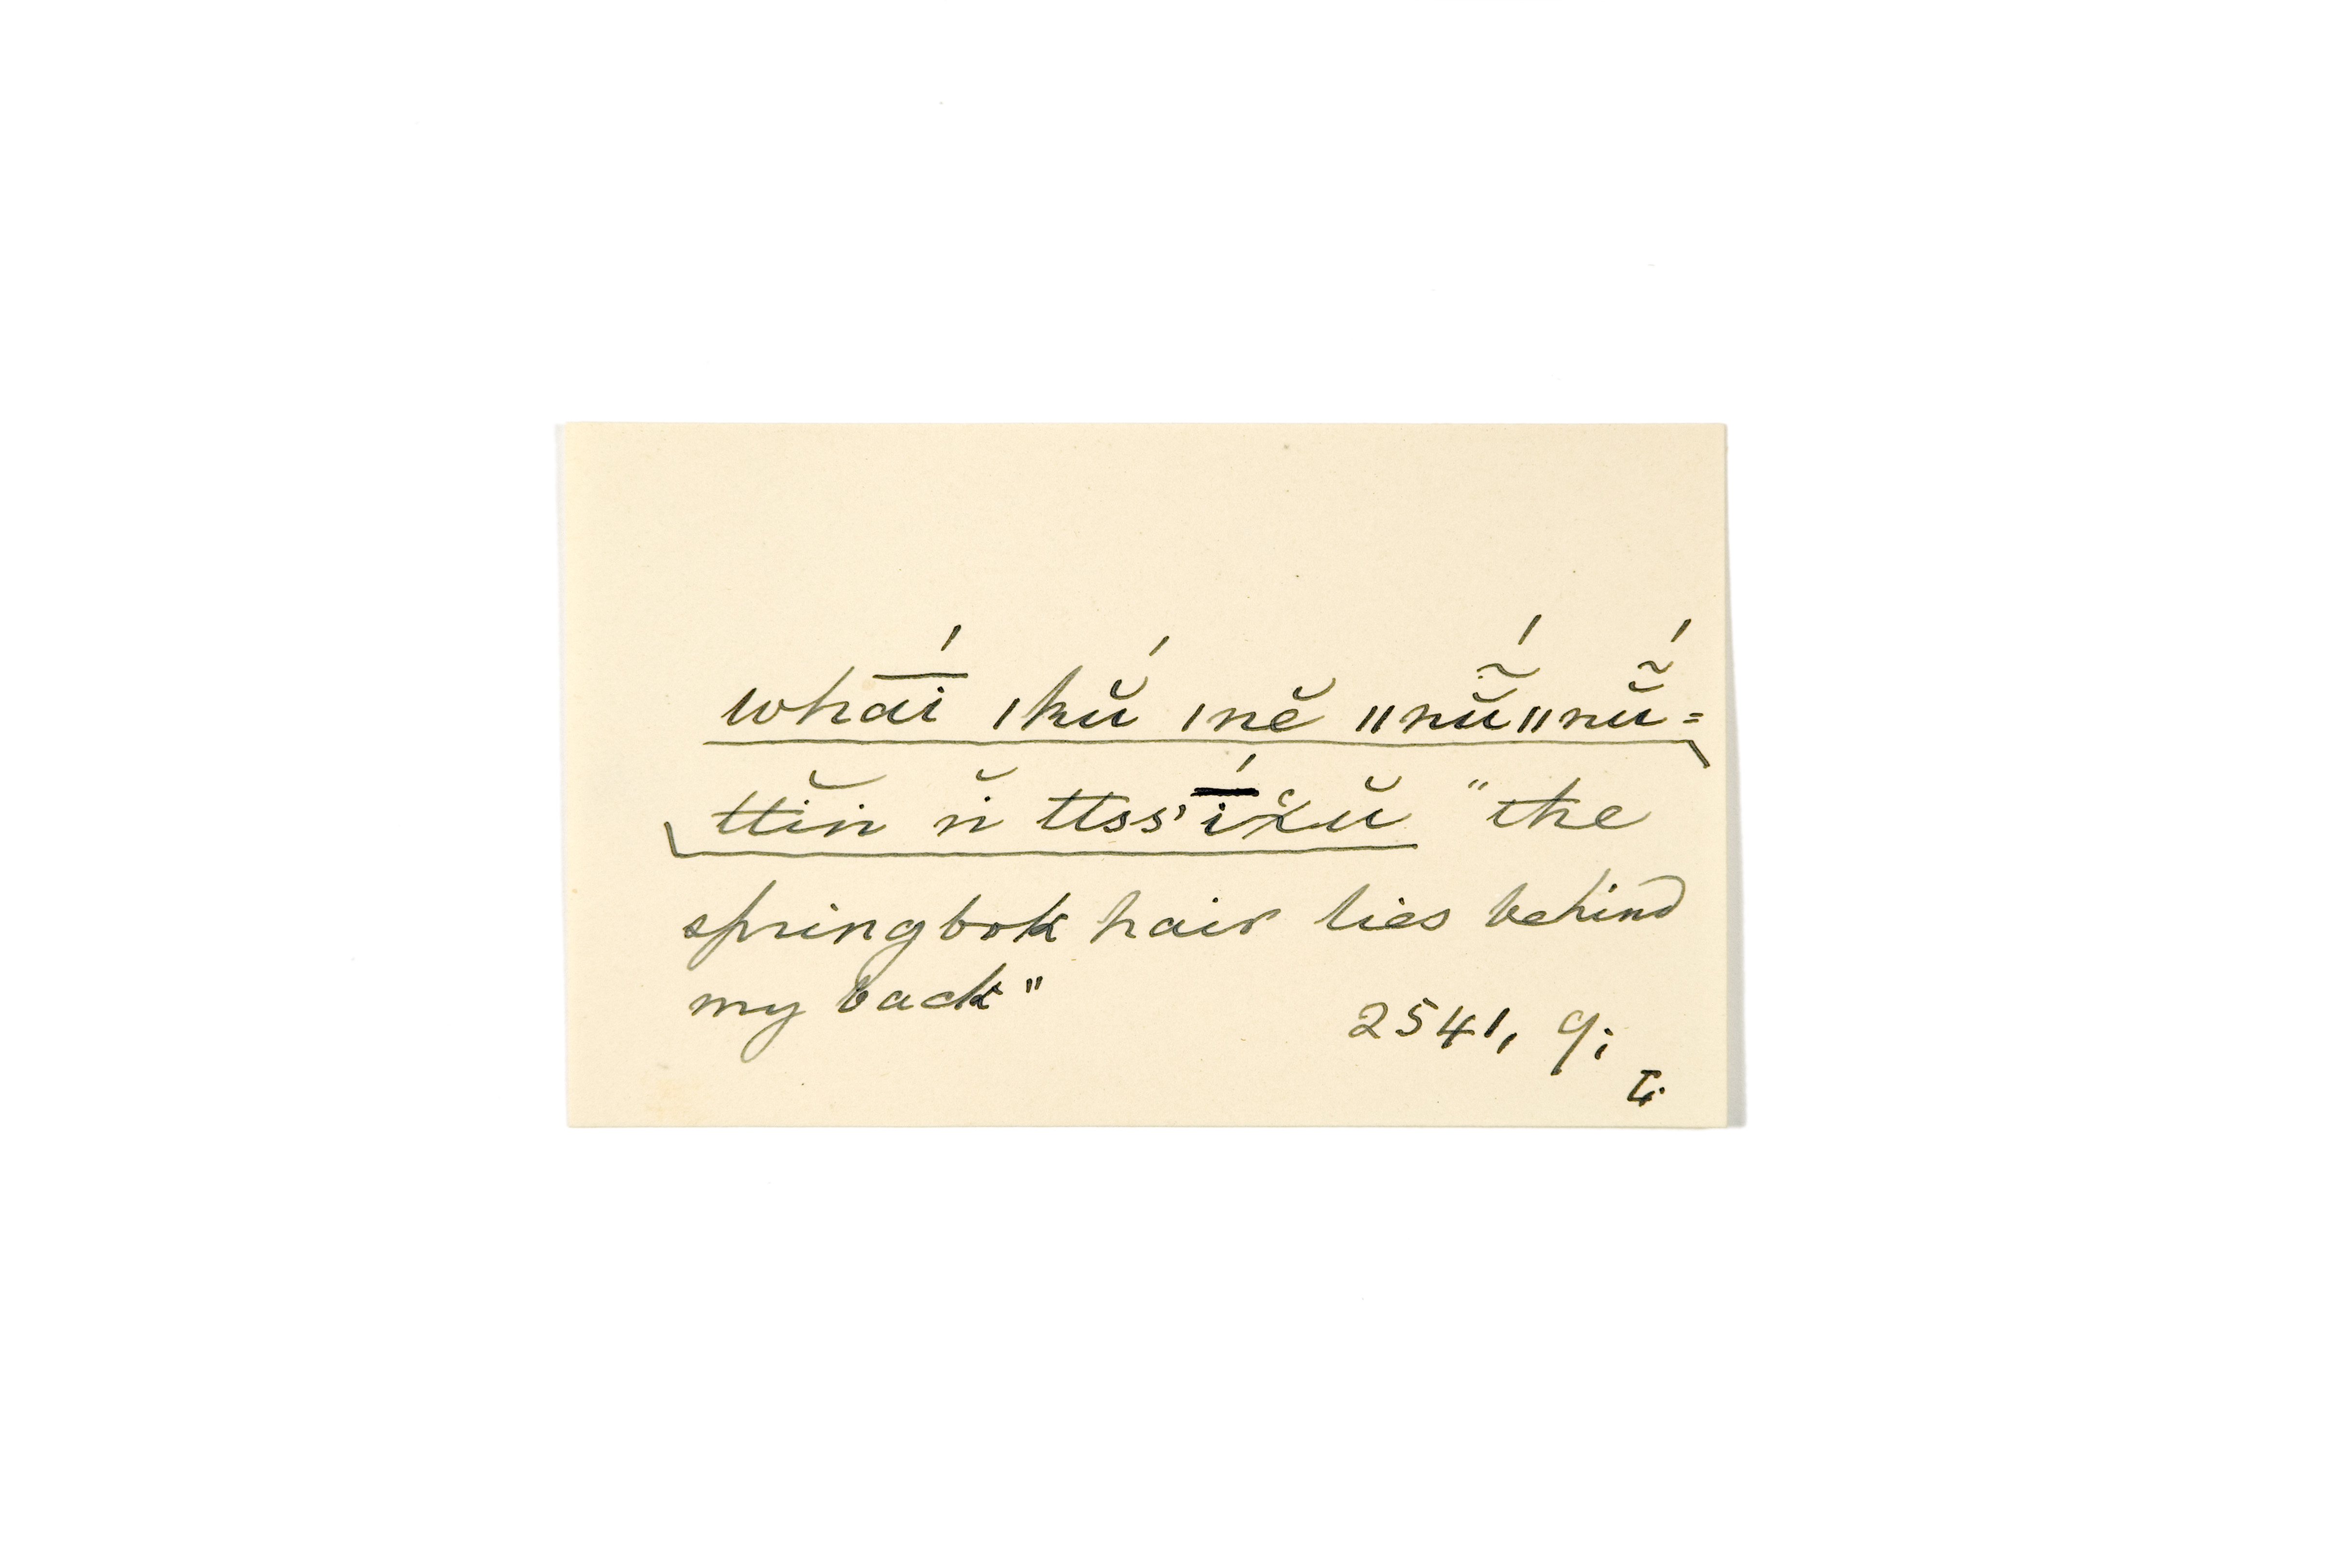 whā́i ǀkŭ́ ǀnĕ ǁnŭ̃́ǁnŭ̃́=
ttĭn n̆ ttss'ī́χŭ "the
springbok hair lies behind
my back"
2541, 9;